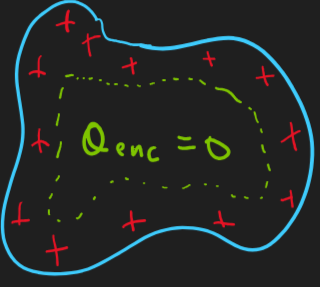 + + + + + + + + + + + + + +
Q enc = 0